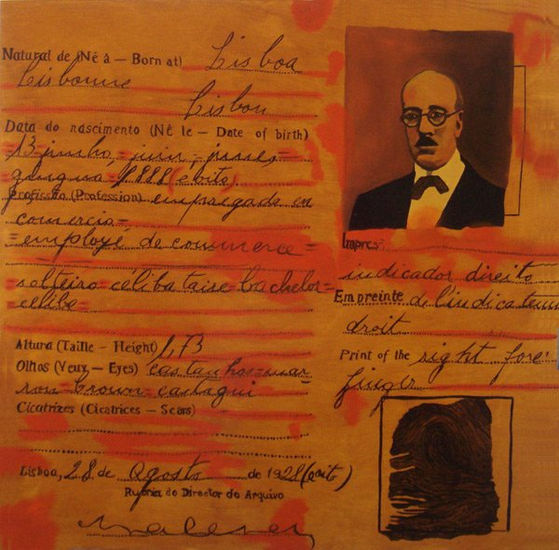 Natural de (Né à — Born at) Lisboa
Lisbonne
Lisbon
Data do nascimento (Né le — Date of birth)
13 junho, juin,
1888 (oito)
Profissão (Profession) empregado en
comercio =
= employé de commerce =
solteiro célibataire bachelor =
celibe
Altura (Taille — Height) 1,73
Olhos (Yeux, — Eyes) castanhos = mar
ron brown castagni
Cicatrizes (Cicatrices — Scars)
Lisboa, 28 de Agosto de 1928 (oito)
do Director do Arquivo
Impres
indicador direito
Empreinte de l'indicateur
droit
Print of the right fore
finger